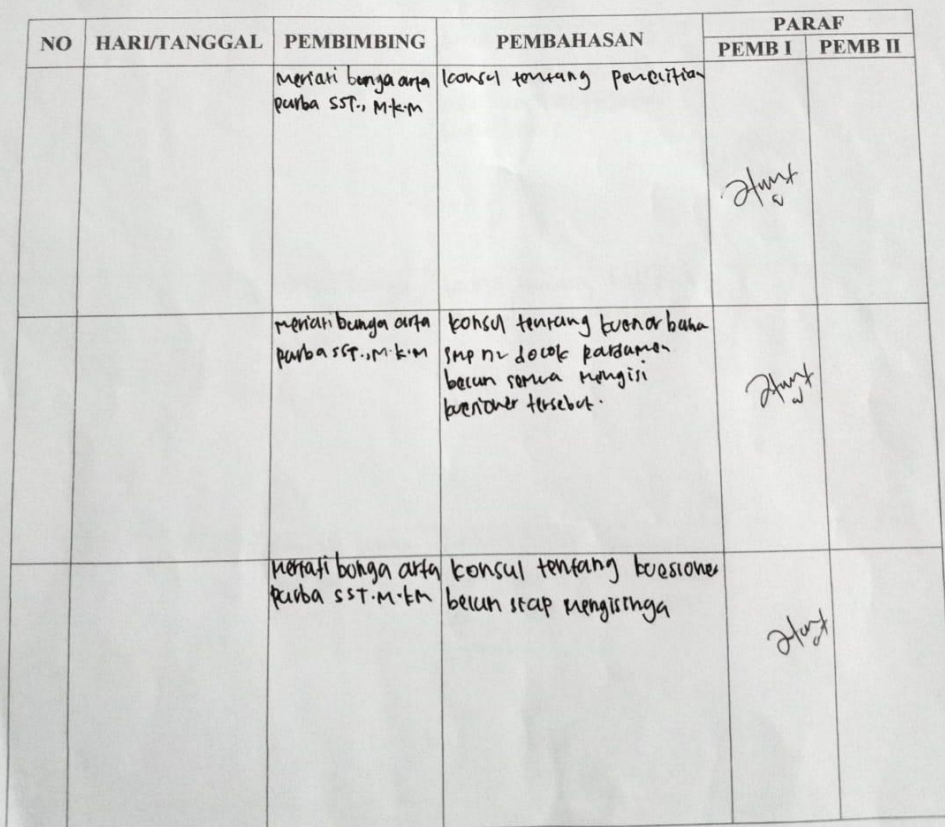 NO HARI/TANGGAL PEMBIMBING PEMBAHASAN PARAF
PEMB I PEMB II
Meriati bunga arta
purba SST., M.k.m
konsul tentang penelitian
Meriati bunga arta
purba SST., M.k.M
konsul tentang
SMP
belum semua mengisi
tersebut.
Meriati bunga arta
purba SST.M.km
konsul tentang kuesioner
belum siap mengisinya